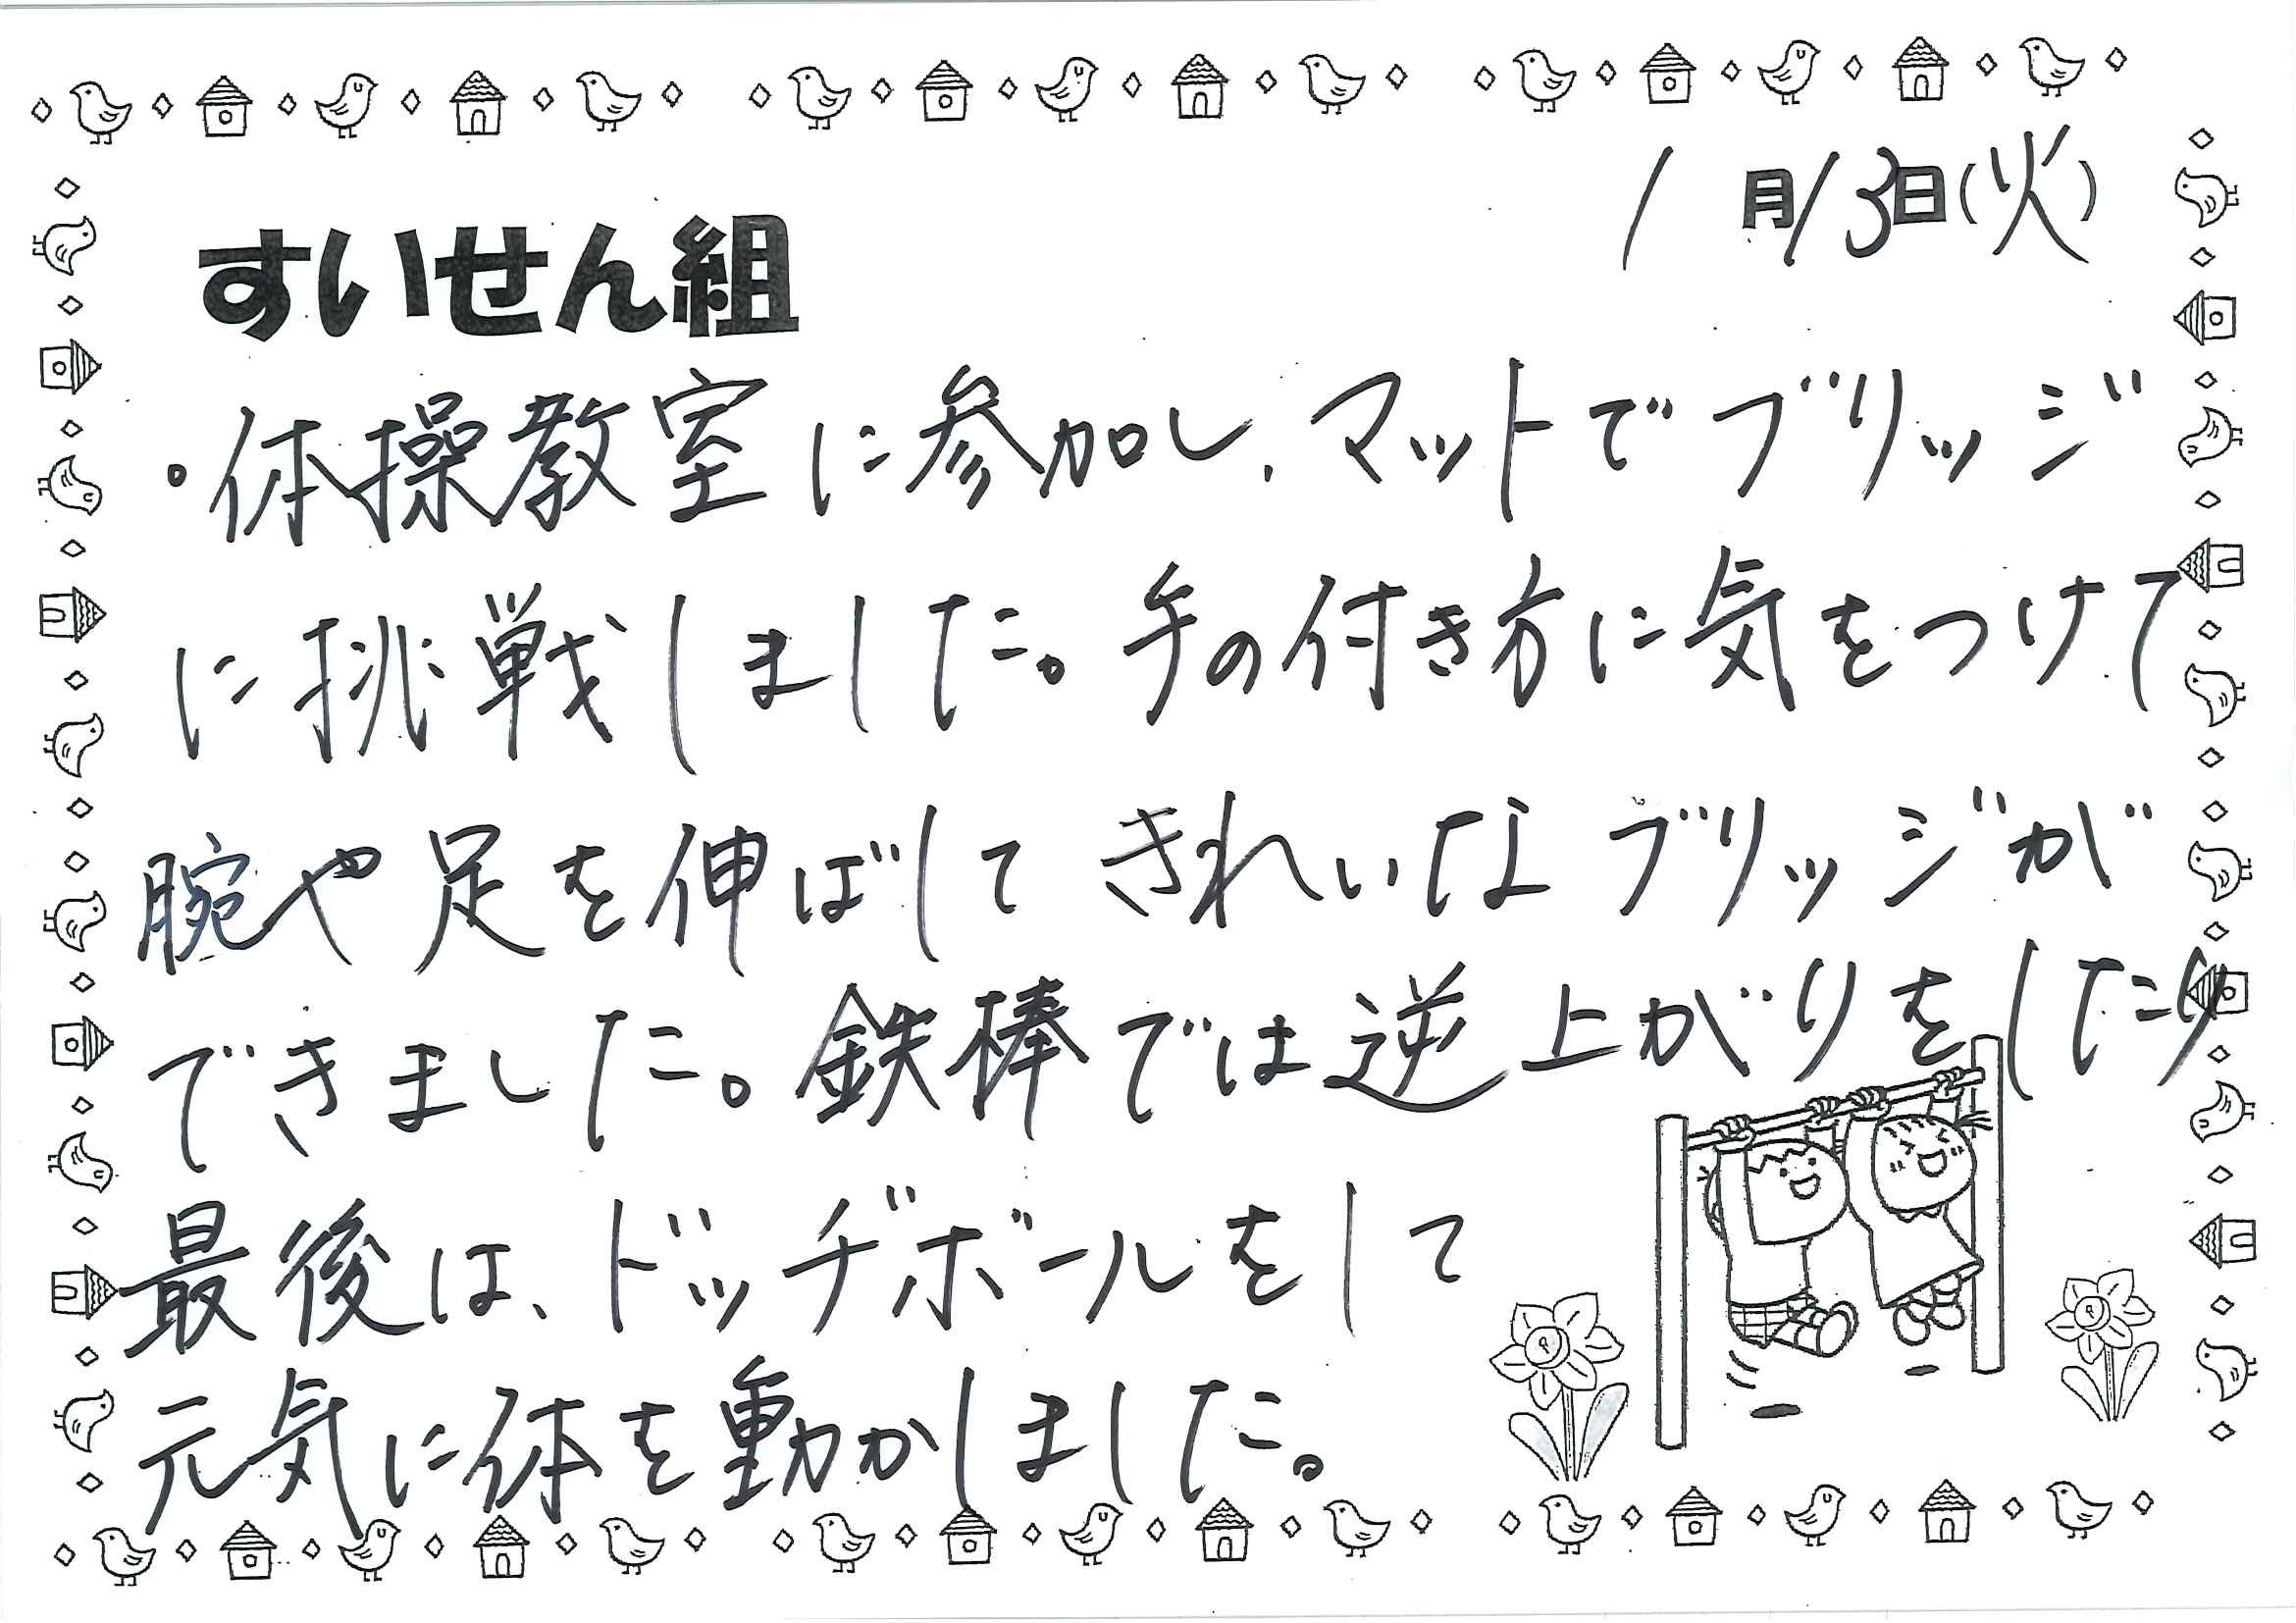 1月13日(火)
すいせん組
・体操教室に参加し、マットでブリッジ
に挑戦しました。手の付き方に気をつけて
腕や足を伸ばしてきれいなブリッジが
できました。鉄棒では逆上がりをしたり
最後は、ドッヂボールをして
元気に体を動かしました。